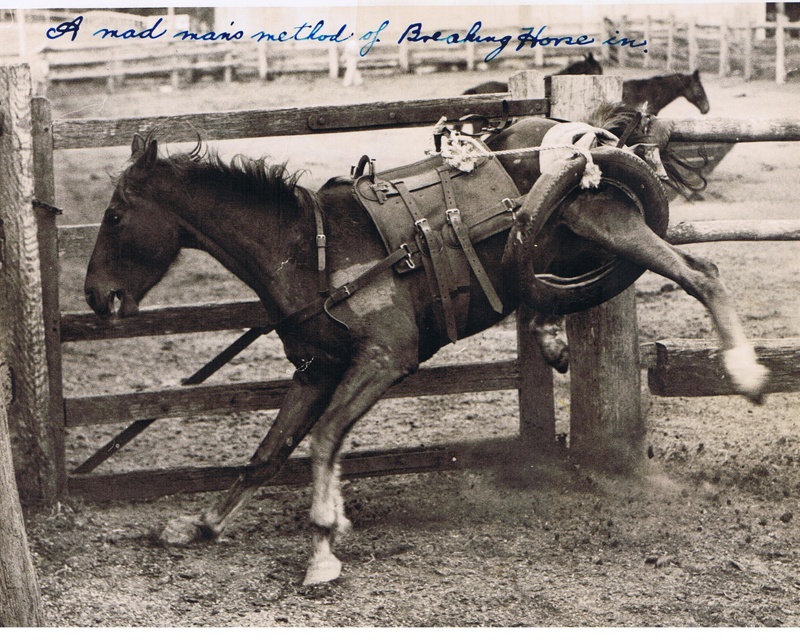 A mad man's method of Breaking Horse in.